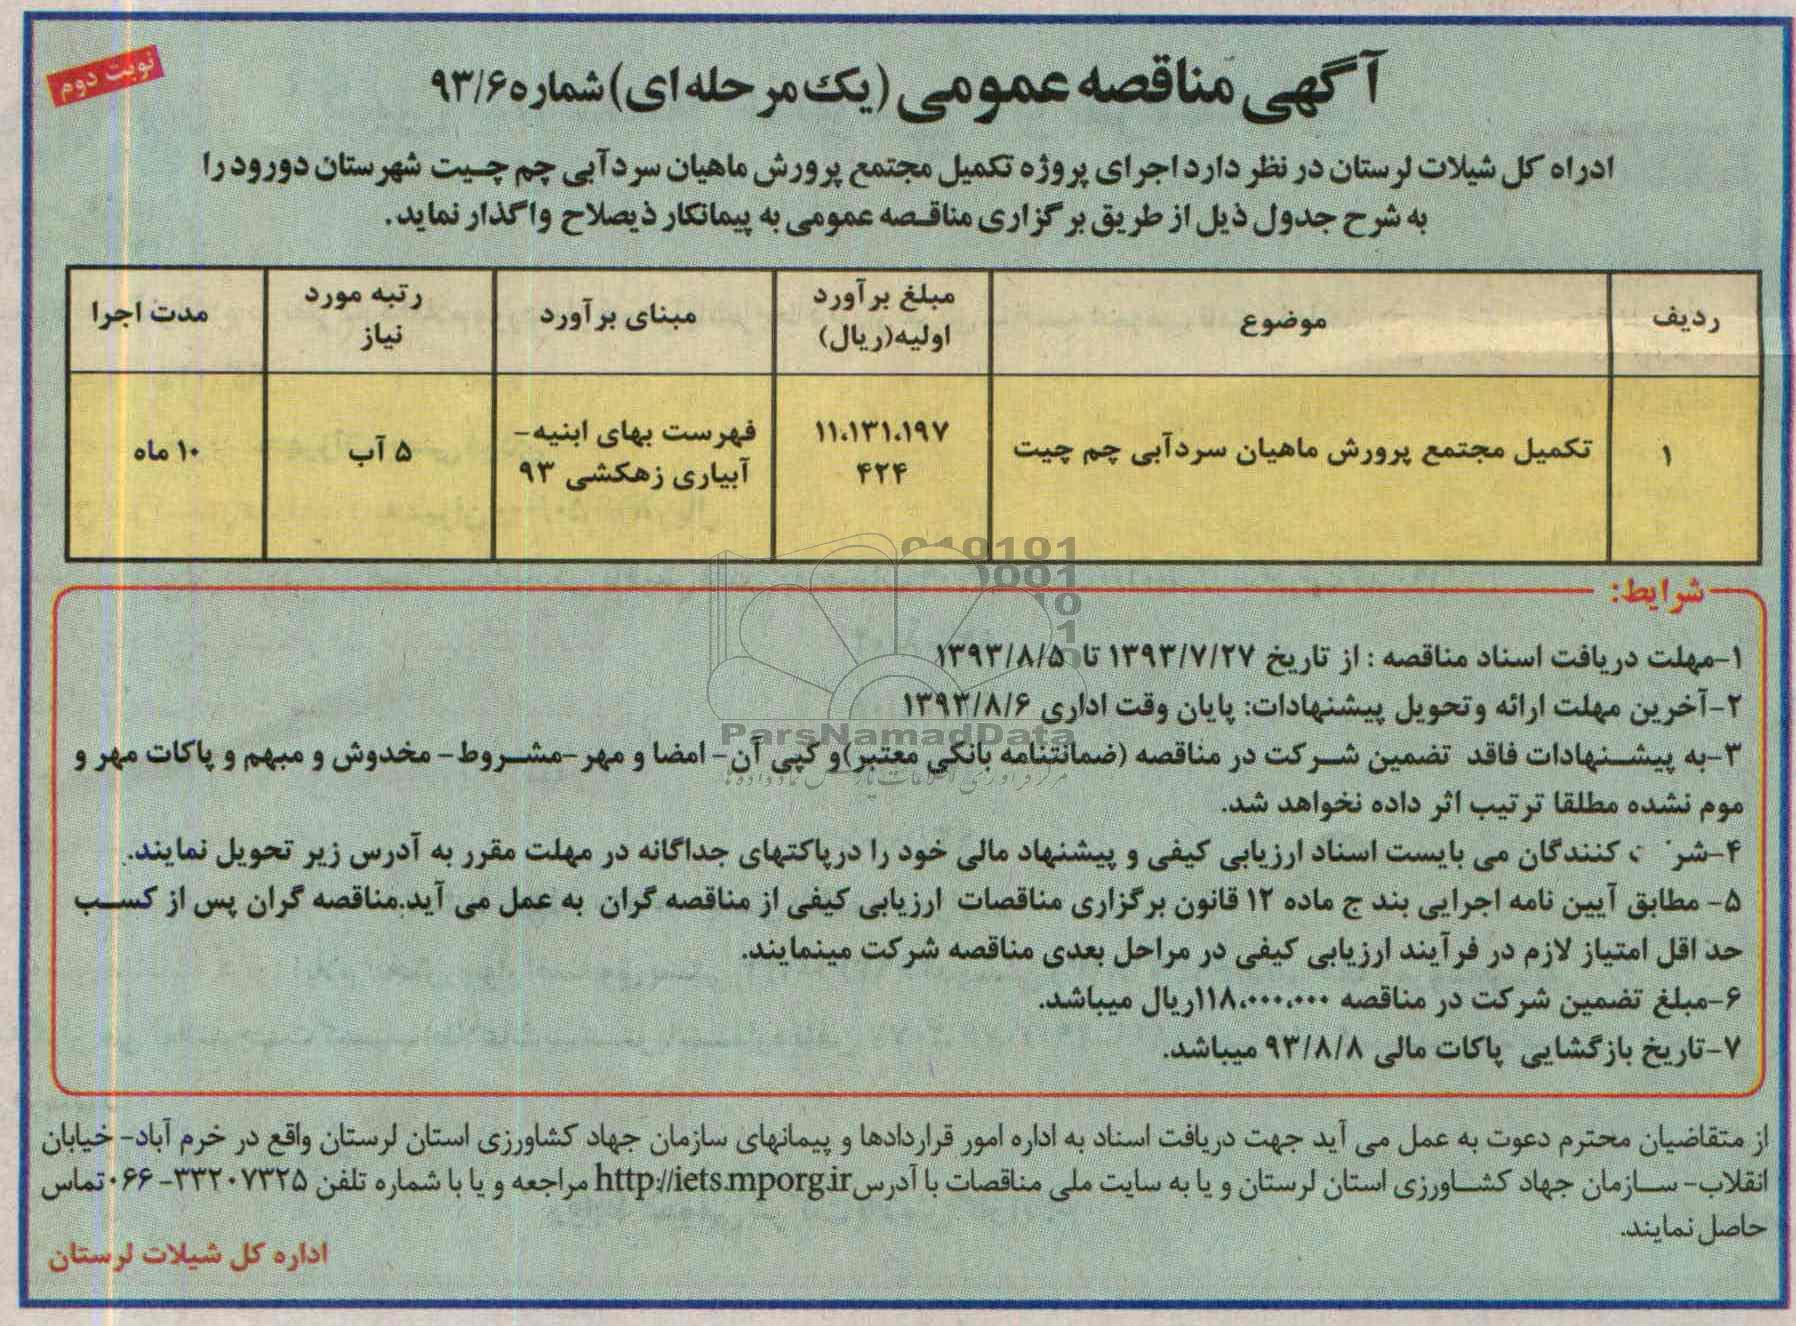 نوبت دوم
آگهی مناقصه عمومی (یک مرحله ای) شماره ۹۳/۶
ادراه کل شیلات لرستان در نظر دارد اجرای پروژه تکمیل مجتمع پرورش ماهیان سردآبی چم چیت شهرستان دورود را
به شرح جدول ذیل از طریق برگزاری مناقصه عمومی به پیمانکار ذیصلاح واگذار نماید.
ردیف	موضوع	مبلغ برآورد اولیه(ریال)	مبنای برآورد	رتبه مورد نیاز	مدت اجرا
۱	تکمیل مجتمع پرورش ماهیان سردآبی چم چیت	۱۱،۱۳۱،۱۹۷ ۴۲۴	فهرست بهای ابنیه- آبیاری زهکشی ۹۳	۵ آب	۱۰ ماه
شرایط:
۱-مهلت دریافت اسناد مناقصه : از تاریخ ۱۳۹۳/۷/۲۷ تا ۱۳۹۳/۸/۵
۲-آخرین مهلت ارائه وتحویل پیشنهادات: پایان وقت اداری ۱۳۹۳/۸/۶
۳-به پیشنهادات فاقد تضمین شرکت در مناقصه (ضمانتنامه بانکی معتبر)و کپی آن- امضا و مهر-مشروط- مخدوش و مبهم و پاکات مهر و
موم نشده مطلقا ترتیب اثر داده نخواهد شد.
۴- کنندگان می بایست اسناد ارزیابی کیفی و پیشنهاد مالی خود را درپاکتهای جداگانه در مهلت مقرر به آدرس زیر تحویل نمایند.
۵- مطابق آیین نامه اجرایی بند ج ماده ۱۲ قانون برگزاری مناقصات ارزیابی کیفی از مناقصه گران به عمل می آید.مناقصه گران پس از کسب
حد اقل امتیاز لازم در فرآیند ارزیابی کیفی در مراحل بعدی مناقصه شرکت مینمایند.
۶-مبلغ تضمین شرکت در مناقصه ۱۱۸،۰۰۰،۰۰۰ریال میباشد.
۷-تاریخ بازگشایی پاکات مالی ۹۳/۸/۸ میباشد.
از متقاضیان محترم دعوت به عمل می آید جهت دریافت اسناد به اداره امور قراردادها و پیمانهای سازمان جهاد کشاورزی استان لرستان واقع در خرم آباد- خیابان
انقلاب- سازمان جهاد کشاورزی استان لرستان و یا به سایت ملی مناقصات با آدرس http://iets.mporg.ir مراجعه و یا با شماره تلفن ۳۳۲۰۷۳۲۵-۰۶۶ تماس
حاصل نمایند.
اداره کل شیلات لرستان
ParsNamadData